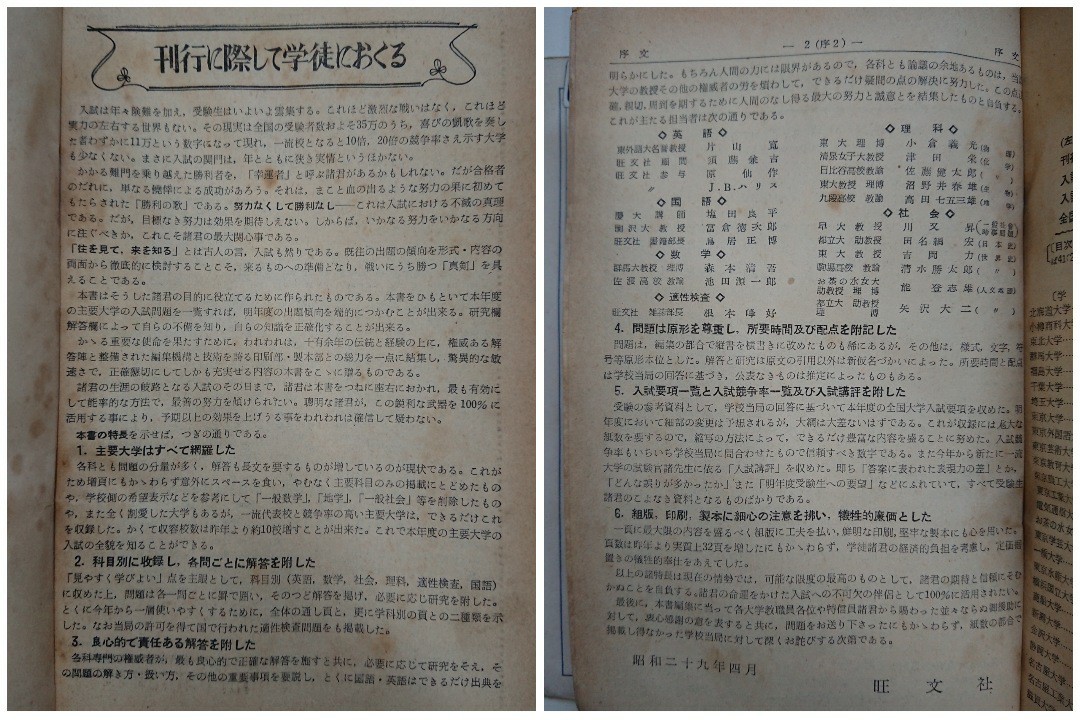 刊行に際して学徒におくる
入試は年々険難を加え、受験生はいよいよ雲集する。これほど激烈な戦いはなく、これほど
実力の左右する世界もない。その現実は全国の受験者数およそ35万のうち、喜びの凱歌を奏し
た者わずかに11万という数字になって現れ、一流校となると10倍、20倍の競争率さえ示す大学
も少なくない。まさに入試の関門は、年とともに狭き実情というほかない。
かかる難門を乗り越えた勝利者を、「幸運者」と呼ぶ諸君があるかもしれない。だが合格者
のだれに、単なる僥倖による成功があろう。それは、まこと血の出るような努力の果に初めて
もたらされた「勝利の歌」である。努力なくして勝利なし――これは入試における不滅の真理
である。だが、目標なき努力は効果を期待しえない。しからば、いかなる努力をいかなる方向
に注ぐべきか、これこそ諸君の最大関心事である。
「往を見て、来を知る」とは古人の言、入試も然りである。既往の出題の傾向を形式・内容の
両面から徹底的に検討することこそ、来るものへの準備となり、戦いにうち勝つ「真剣」を具
えることである。
本書はそうした諸君の目的に役立てるために作られたものである。本書をひもといて本年度
の主要大学の入試問題を一覧すれば、明年度の出題傾向を端的につかむことが出来る。研究欄
解答欄によって自らの不備を知り、自らの知識を正確化することが出来る。
かゝる重要な使命を果たすために、われわれは、十有余年の伝統と経験の上に、権威ある解
答陣と整備された編集機構と技術を誇る印刷部・製本部との総力を一点に結集し、驚異的な敏
速さで、正確懇切にしてしかも充実せる内容の本書をこゝに贈るものである。
諸君の生涯の岐路となる入試のその日まで、諸君は本書をつねに座右におかれ、最も有効に
して能率的な方法で、最善の努力を傾けられたい。聡明なる諸君が、この鋭利な武器を100%に
活用する事により、予期以上の効果を上げうる事をわれわれは確信して疑わない。
本書の特長を示せば、つぎの通りである。
1. 主要大学はすべて網羅した
各科とも問題の分量が多く、解答も長文を要するものが増しているのが現状である。これが
ため増頁にもかゝわらず意外にスペースを食い、やむなく主要科目のみの掲載にとどめたもの
や、学校側の希望表示などを参考にして「一般数学」、「地学」、「一般社会」等を削除したもの
や、また全く割愛した大学もあるが、一流代表校と競争率の高い主要大学は、できるだけこれ
を収録した。かくて収容校数は昨年より約10校増すことが出来た。これで本年度の主要大学の
入試の全貌を知ることができる。
2. 科目別に収録し、各問ごとに解答を附した
「見やすく学びよい」点を主眼として、科目別(英語、数学、社会、理科、適性検査、国語)
に収めた上、問題は各一問ごとに罫で囲い、そのつど解答を掲げ、必要に応じ研究を附した。
とくに今年から一層使いやすくするために、全体の通し頁と、更に学科別の頁との二種類を示
した。なお当局の許可を得て国で行われた適性検査問題をも掲載した。
3. 良心的で責任ある解答を附した
各科専門の権威者が、最も良心的で正確な解答を施すと共に、必要に応じて研究をそえ、そ
の問題の解き方・扱い方、その他の重要事項を要説し、とくに国語・英語はできるだけ出典を
序文 ― 2(序2)― 序文
明らかにした。もちろん人間の力には限界があるので、各科とも論議の余地あるものは、当該
大学の教授その他の権威者の労を煩わして、できるだけ疑問の点の解決に努力した。この点正
確、親切、周到を期するために人間のなし得る最大の努力と誠意とを結集したものと自負する。
これが主たる担当者は次の通りである。
◇英語◇
東外語大名誉教授 片山寛
旺文社顧問 須藤兼吉
旺文社参与 原仙作
〃 J.B.ハリス
◇国語◇
慶大講師 塩田良平
駒沢大教授 冨倉徳次郎
旺文社 書籍部長 鳥居正博
◇数学◇
群馬大教授 理博 森本清吾
佐渡高校教諭 池田源一郎
◇適性検査◇
旺文社 雑誌部長 根本峰好
◇理科◇
東大理博 小倉義光(物理)
清泉女子大教授 津田栄(化学)
日比谷高校教諭 佐藤健太郎(〃)
東大教授 理博 沼野井春雄(生物)
九段高校教諭 高田七五三雄(地学)
◇社会◇
早大教授 川又昇(一般社会 時事問題)
都立大助教授 田名網宏(日本史)
東大教授 吉岡力(世界史)
駒場高校教諭 清水勝太郎(〃)
お茶の水女大 助教授 理博 能登志雄(人文地理)
都立大助教授 理博 矢沢大二(〃)
4. 問題は原形を尊重し、所要時間及び配点を附記した
問題は、編集の都合で縦書を横書きに改めたものも稀にあるが、その他は、様式、文字、符
号等原形本位とした。解答と研究は原文の引用以外は新仮名づかいによった。所要時間と配点
は学校当局の回答に基づき、公表なきものは推定によったものもある。
5. 入試要項一覧と入試競争率一覧及び入試講評を附した
受験の参考資料として、学校当局の回答に基づいて本年度の全国大学入試要項を収めた。明
年度において細部の変更は予想されるが、大綱は大差ないはずである。これが収録には尨大な
紙数を要するので、縮写の方法によって、できるだけ豊富な内容を盛ることに努めた。入試競
争率もいちいち学校当局に問合わせたもので信頼すべき数字である。また今年から新たに一流
大学の試験官諸先生に依る「入試講評」を収めた。即ち「答案に表われた表現力の差」とか、
「どんな誤りが多かったか」また「明年度受験生への要望」などにふれていて、すべて受験生
諸君のこよなき資料となるものばかりである。
6. 組版、印刷、製本に細心の注意を拂い、犠牲的廉価とした
一頁に最大限の内容を盛るべく組版に工夫を払い、鮮明な印刷、堅牢な製本にも心を用いた。
頁数は昨年より実質上32頁を増したにもかゝわらず、学徒諸君の経済的負担を考慮し、定価据
置きの犠牲的奉仕をあえてした。
以上の諸特長は現在の情勢では、可能な限度の最高のものとして、諸君の期待と信頼にそむ
かぬことを自負する。諸君の命運をかけた入試への不可欠の伴侶として100%に活用されたい。
最後に、本書編纂に当って各大学教職員各位や特信員諸君から賜わった並々ならぬ御援助に
対して、衷心感謝の意を表すると共に、問題をお送り下さったにもかゝわらず、紙数の都合で
掲載し得なかった学校当局に対して深くお詫びする次第である。
昭和二十九年四月
旺文社
北海道大学
小樽商科大学
東北大学
群馬大学
福島大学
千葉大学
埼玉大学
東京大学
東京外国語
東京芸術大学
東京教育大学
東京商工大学
東京工業大
電気通信大
お茶の水女
東京学芸大
一橋大学
東京水産大
横浜国立大
新潟大学
金沢大学
静岡大学
名古屋大学
名古屋工業